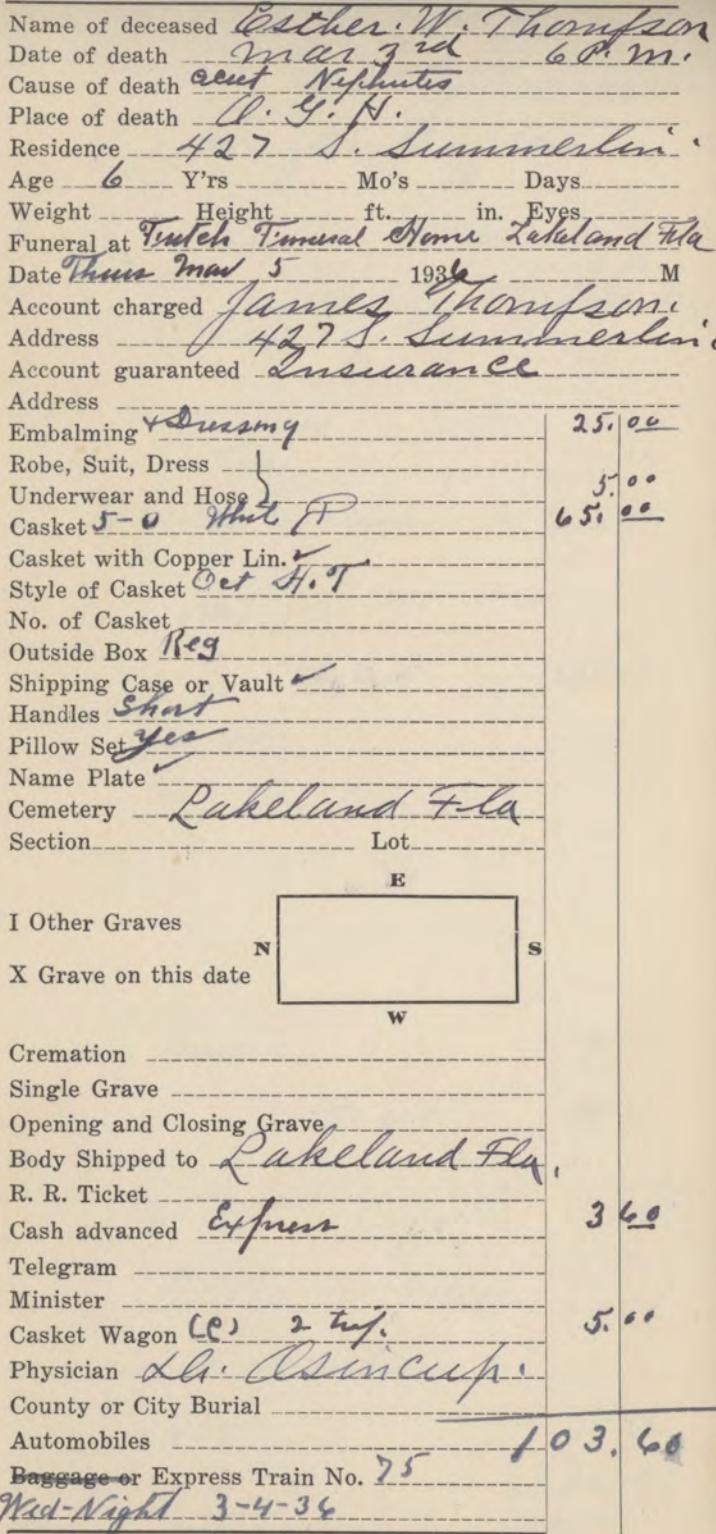 Name of deceased Esther. W. Thompson
Date of death Mar 3rd 6 P. M.
Cause of death acut Nephrites
Place of death O. G. H.
Residence 427 S. Summerlin
Age 6 Y'rs Mo's Days
Weight Height ft. in. Eyes
Funeral at Funeral Home Lakeland Fla
Date Thurs Mar 5 1936 M
Account charged James Thompson.
Address 427 S. Summerlin
Account guaranteed Insurance
Address
Embalming + Dressing 25.00
Robe, Suit, Dress
Underwear and Hose 5.00
Casket 5-0 Whit P 65.00
Casket with Copper Lin. ✓
Style of Casket Oct H. T
No. of Casket
Outside Box Reg
Shipping Case or Vault ✓
Handles Short
Pillow Set yes
Name Plate ✓
Cemetery Lakeland Fla
Section Lot
E
I Other Graves
N S
X Grave on this date
W
Cremation
Single Grave
Opening and Closing Grave
Body Shipped to Lakeland Fla,
R. R. Ticket
Cash advanced Express 3 60
Telegram
Minister
Casket Wagon (C) 2 trip. 5.00
Physician Dr. Osincup.
County or City Burial
Automobiles 103.60
Baggage or Express Train No. 75
Wed-Night 3-4-36